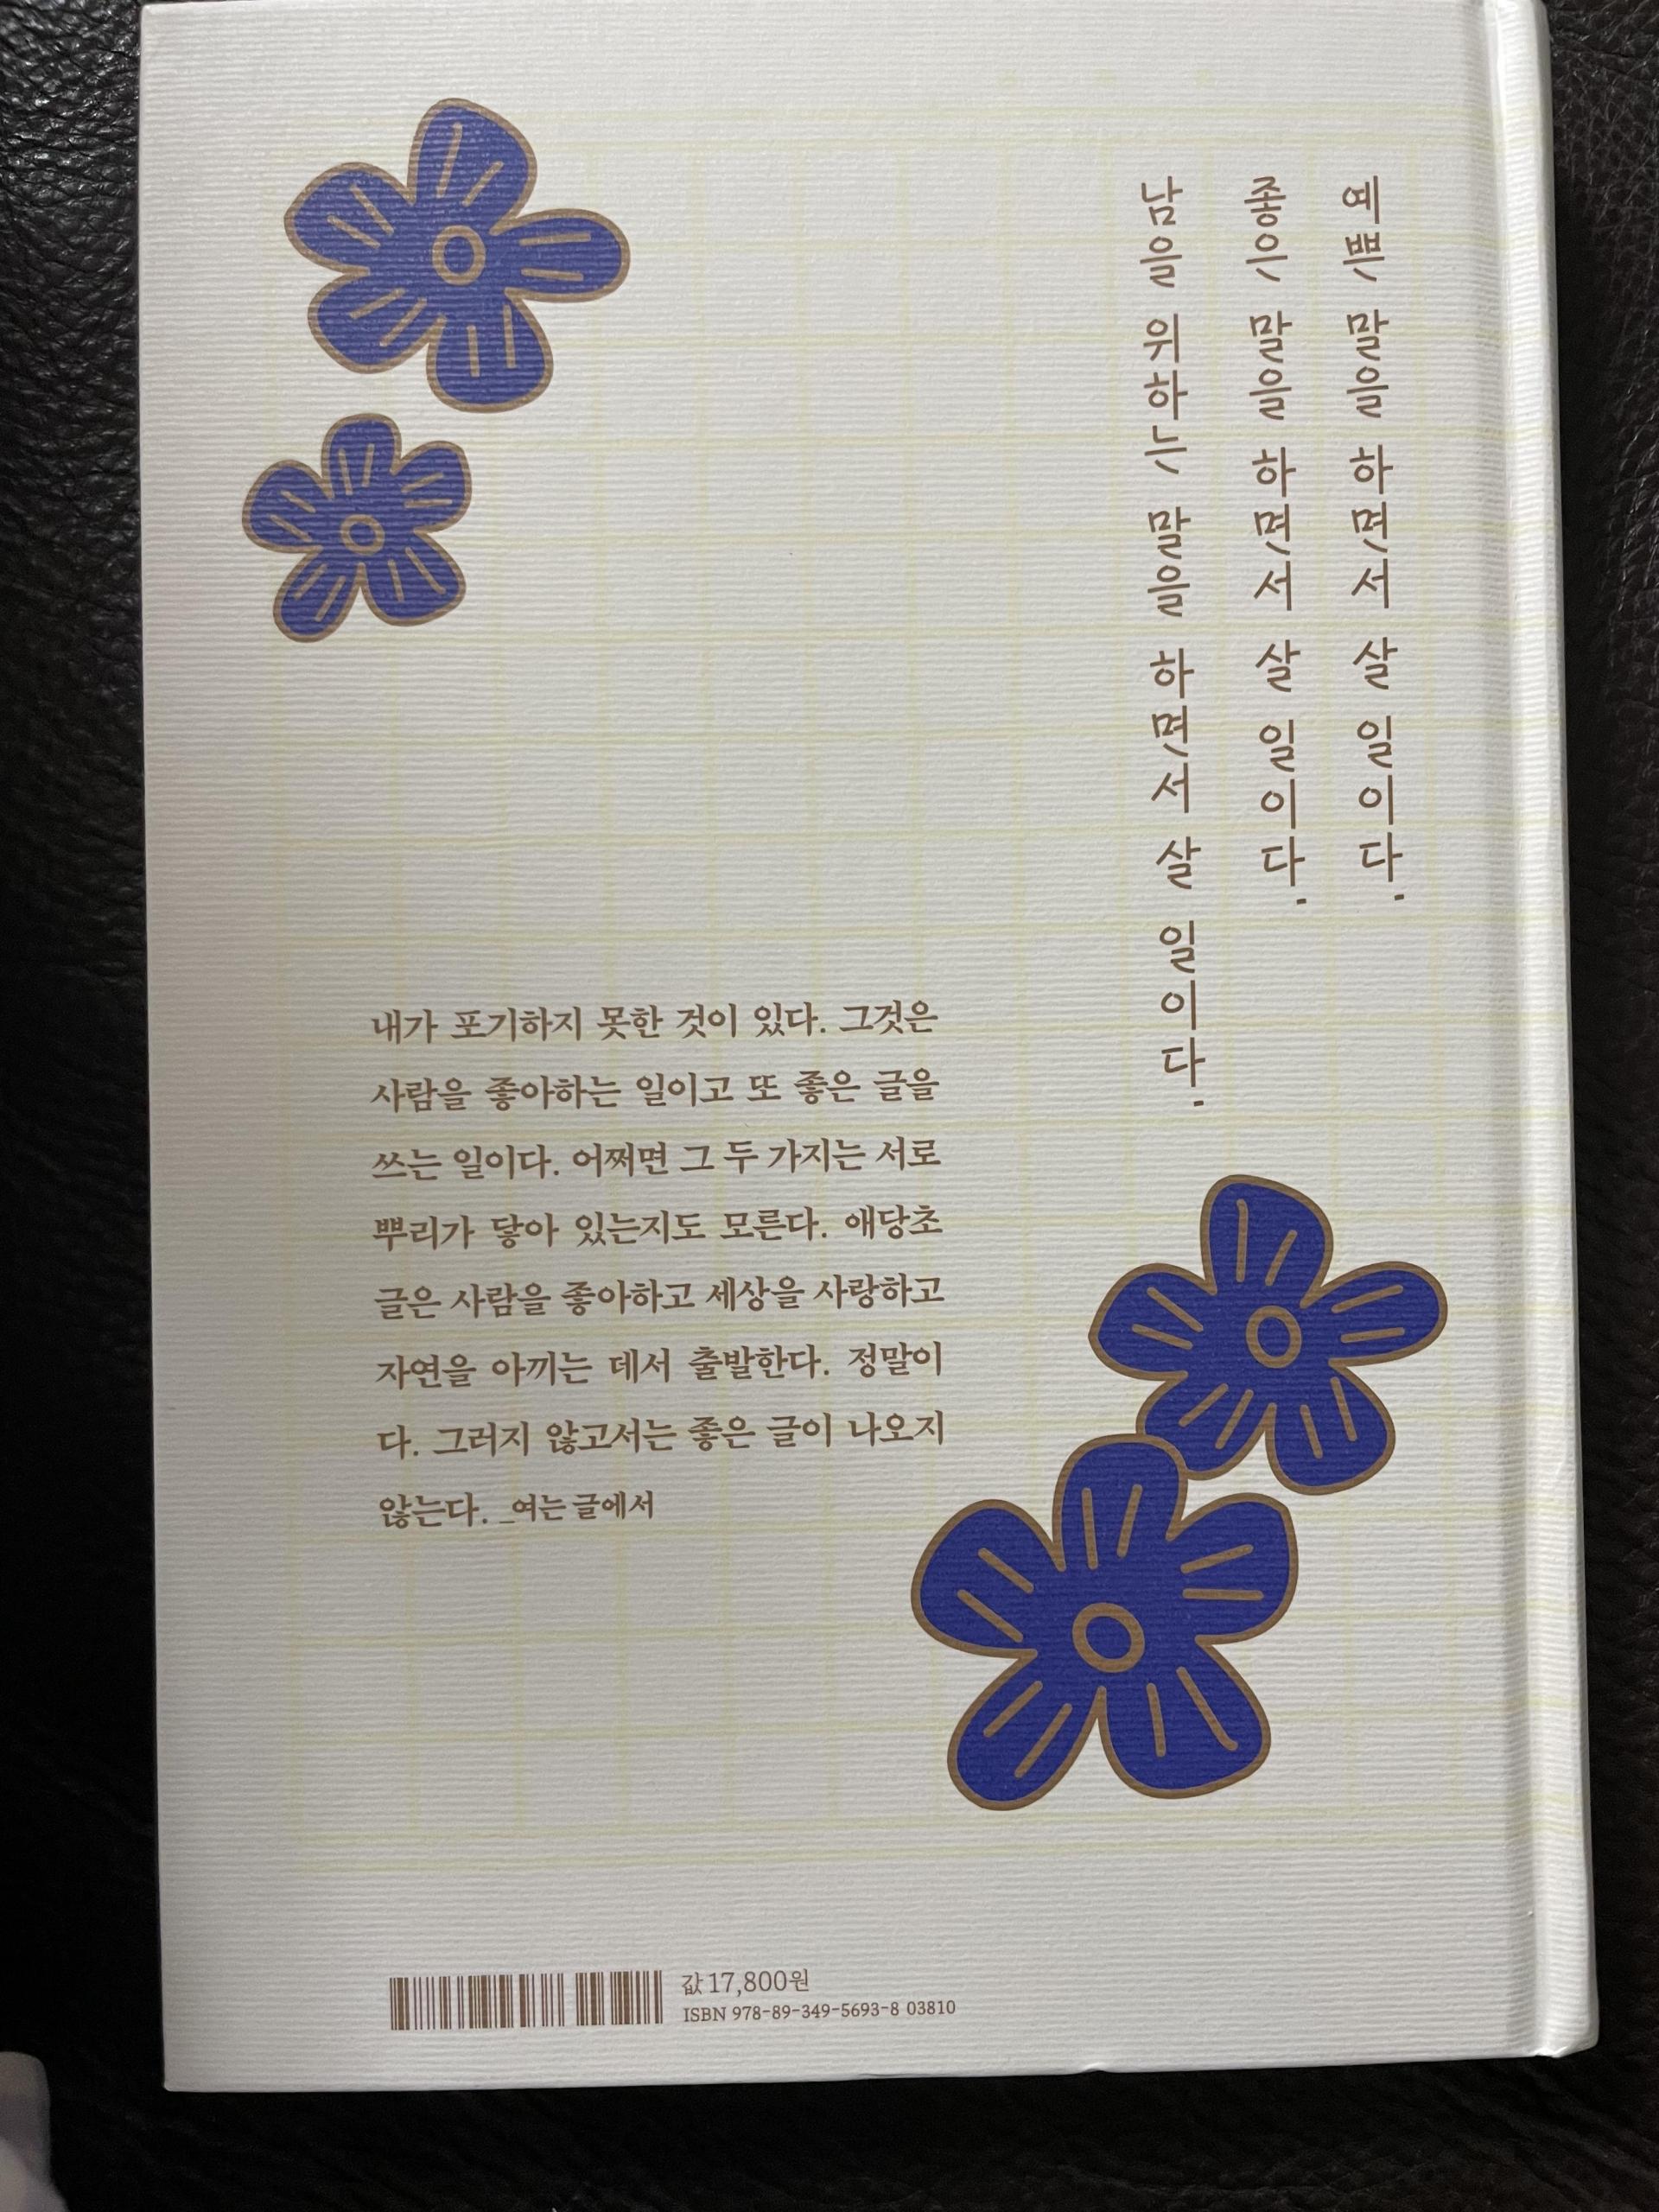 예쁜 말을 하면서 살 일이다.
좋은 말을 하면서 살 일이다.
남을 위하는 말을 하면서 살 일이다.
내가 포기하지 못한 것이 있다. 그것은
사람을 좋아하는 일이고 또 좋은 글을
쓰는 일이다. 어쩌면 그 두 가지는 서로
뿌리가 닿아 있는지도 모른다. 애당초
글은 사람을 좋아하고 세상을 사랑하고
자연을 아끼는 데서 출발한다. 정말이
다. 그러지 않고서는 좋은 글이 나오지
않는다. _여는 글에서
값 17,800원
ISBN 978-89-349-5693-8 03810